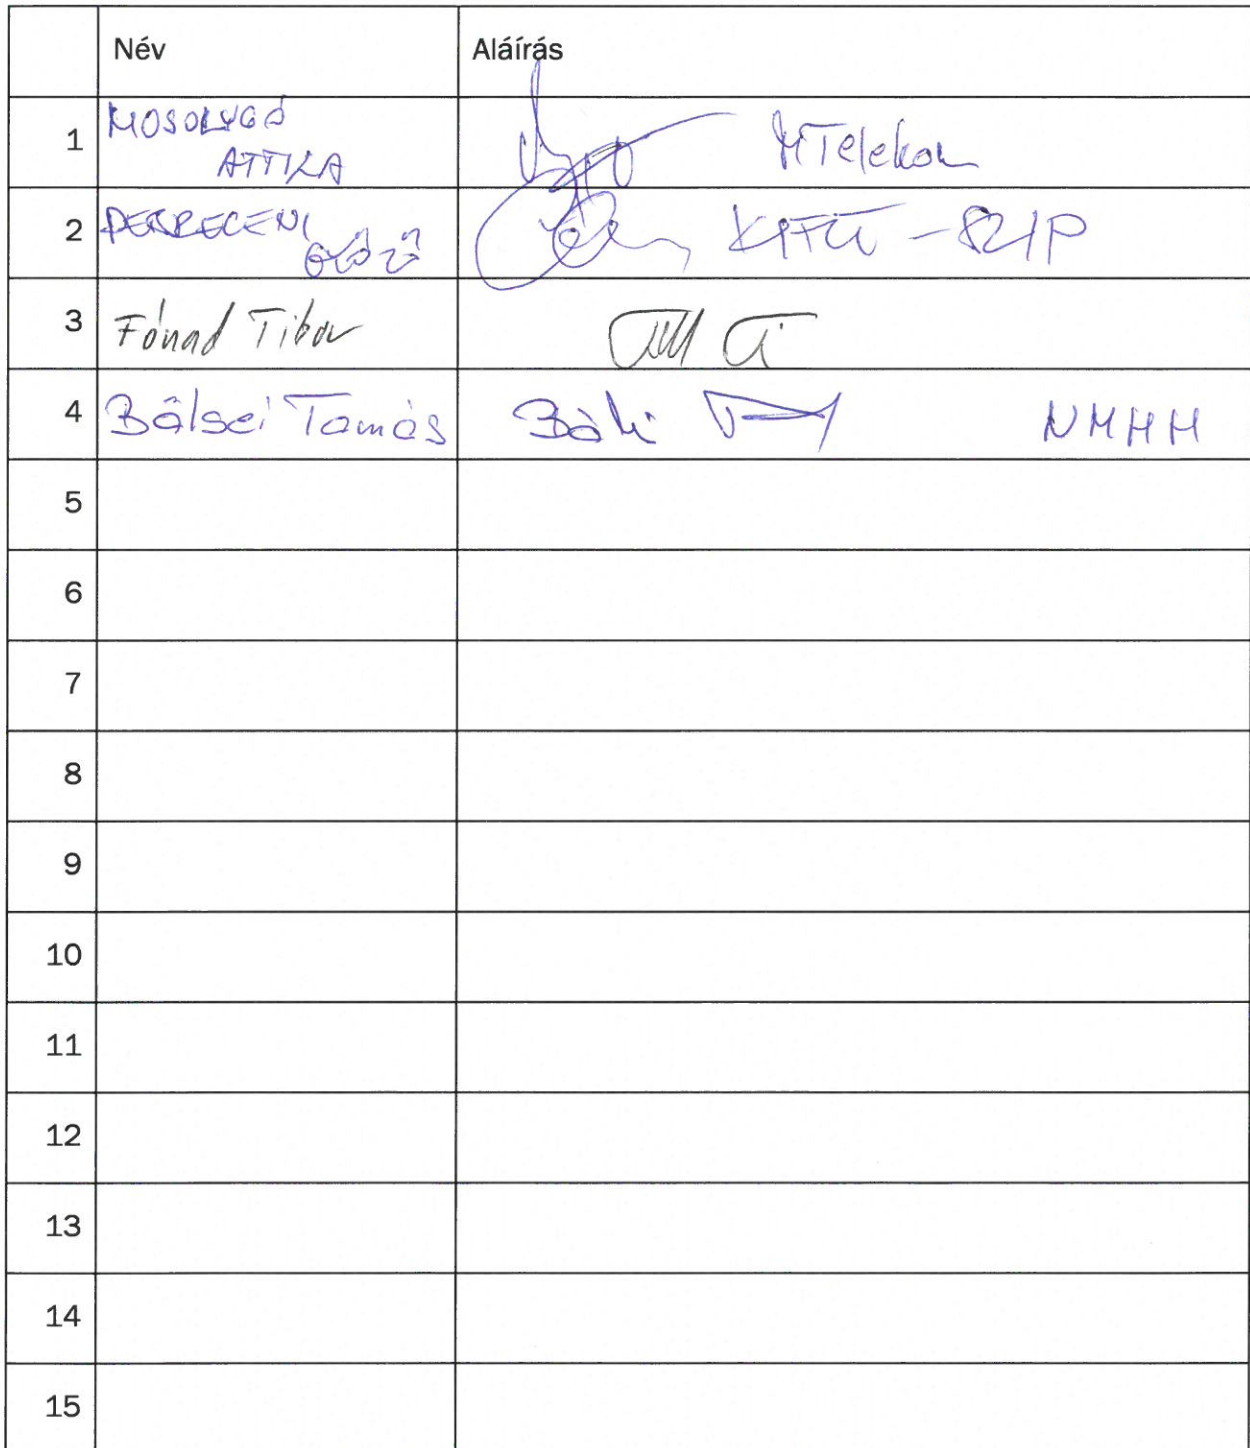 Név Aláírás
1 MOSOLYGÓ
ATTILA MTelekom
2 DEBRECENI
GYŐZŐ KIFÜ - SZIP
3 Fónad Tibor
4 Bölsei Tamás NMHH
5
6
7
8
9
10
11
12
13
14
15